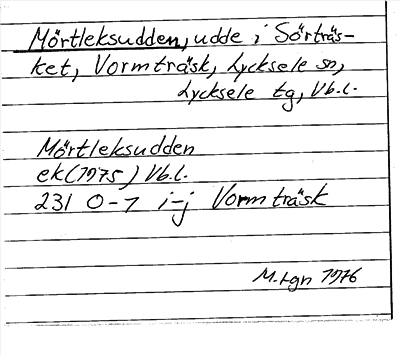 Mörtleksudden, udde i Sörträs-
ket, Vormträsk, Lycksele sn,
Lycksele tg, Vb.l.
Mörtleksudden
ek(1975) Vb.l.
231 0-1 i-j Vormträsk
M. Lgn 1976